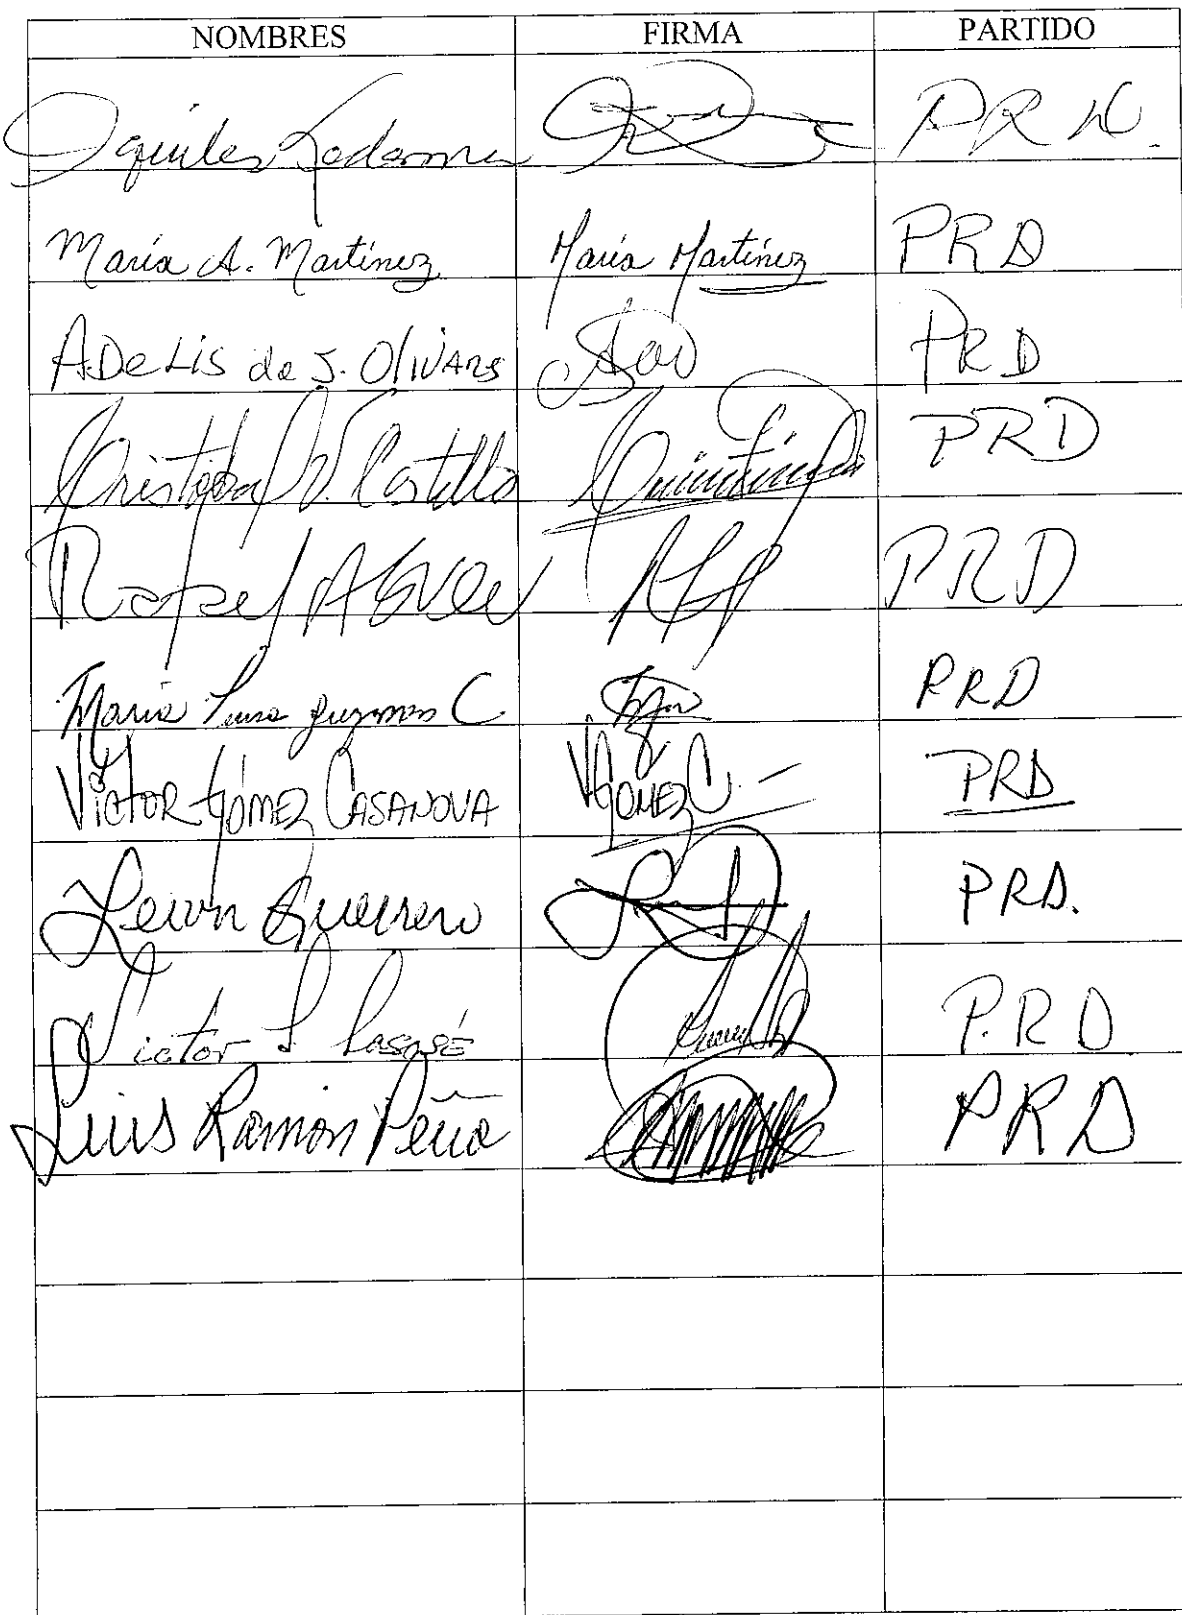 NOMBRES FIRMA PARTIDO
Aquiles Ledesma PRD.
María A. Martínez María Martínez PRD
ADeLis de J. OlivAres PRD
Cristóbal V. Castillo PRD
Rafael Abreu PRD
María Luisa guzmán C. PRD
VICTOR GÓMEZ CASANOVA VGOMEZ C. PRD
Guerrero PRD.
Victor P.R.D
Luis Ramón Peña PRD